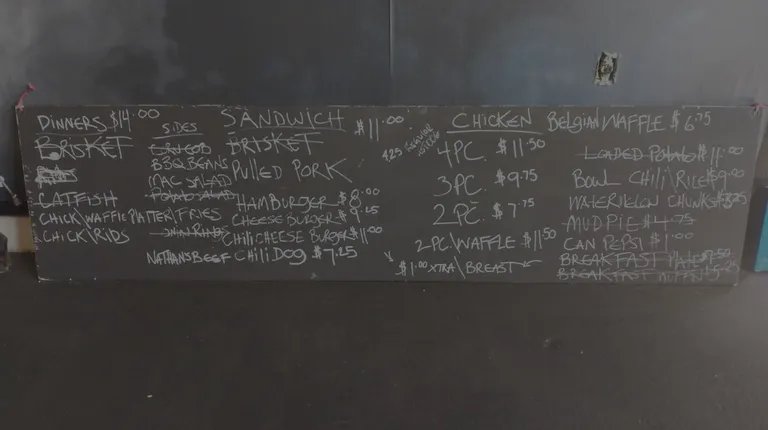 DINNERS $14.00
BRISKET
CATFISH
CHICK\WAFFLE PLATTER
CHICK\RIBS
SIDES
BBQ BEANS
MAC SALAD
POTATO SALAD
FRIES
ONION RINGS
SANDWICH $11.00
BRISKET
PULLED PORK
HAMBURGER $8.00
CHEESE BURGER $9.25
CHILI CHEESE BURGER $11.00
NATHANS BEEF CHILI DOG $7.25
CHICKEN
4PC. $11.50
3PC. $9.75
2PC. $7.75
2-PC\WAFFLE $11.50
$1.00 XTRA\BREAST
BELGIAN WAFFLE $6.75
LOADED POTATO $11.00
BOWL CHILI\RICE $9.00
WATERMELON CHUNKS
MUDPIE $4.75
CAN PEPSI $1.00
BREAKFAST PLATE $7.50
BREAKFAST